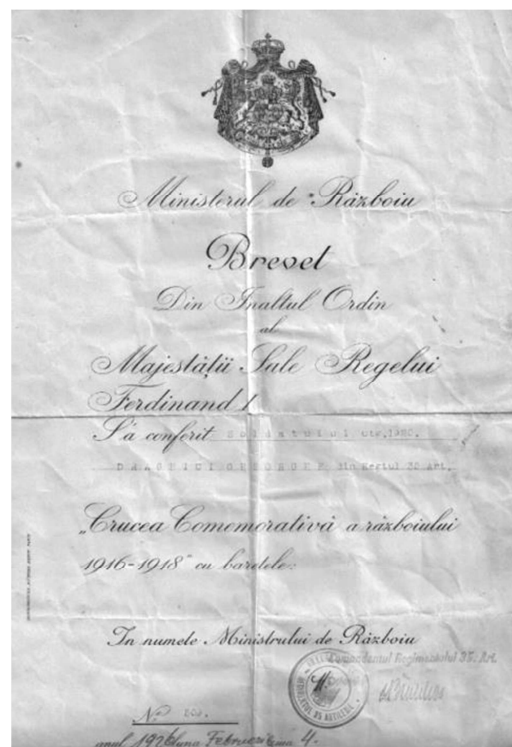 Ministerul de Războiu
Brevet
Din Inaltul Ordin
al
Majestății Sale Regelui
Ferdinand I
S'a conferit Soldatului ctg.
DRAGHICI GEORGHE din Regtul 30 Art.
„Crucea Comemorativă a războiului
1916-1918" cu baretele:
In numele Ministrului de Războiu
Comandantul Regimentului 35. Art.
No
anul 1926 luna Februarie ziua 4.